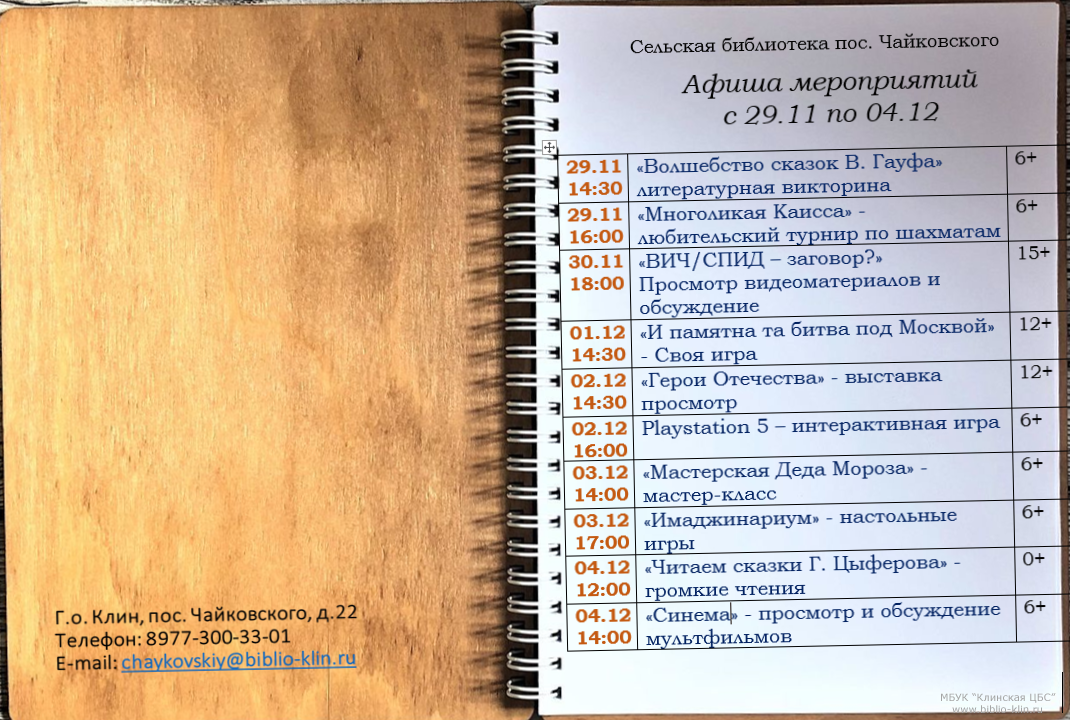 Г.о. Клин, пос. Чайковского, д.22
Телефон: 8977-300-33-01
E-mail: chaykovskiy@biblio-klin.ru
Сельская библиотека пос. Чайковского
Афиша мероприятий
с 29.11 по 04.12
29.11 «Волшебство сказок В. Гауфа» 6+
14:30 литературная викторина
29.11 «Многоликая Каисса» - 6+
16:00 любительский турнир по шахматам
30.11 «ВИЧ/СПИД – заговор?» 15+
18:00 Просмотр видеоматериалов и
обсуждение
01.12 «И памятна та битва под Москвой» 12+
14:30 - Своя игра
02.12 «Герои Отечества» - выставка 12+
14:30 просмотр
02.12 Playstation 5 – интерактивная игра 6+
16:00
03.12 «Мастерская Деда Мороза» - 6+
14:00 мастер-класс
03.12 «Имаджинариум» - настольные 6+
17:00 игры
04.12 «Читаем сказки Г. Цыферова» - 0+
12:00 громкие чтения
04.12 «Синема» - просмотр и обсуждение 6+
14:00 мультфильмов
МБУК "Клинская ЦБС"
www.biblio-klin.ru